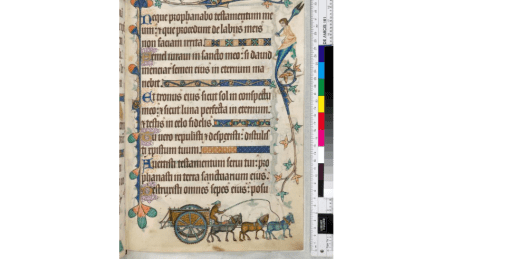 Neque prophanabo testamentum me
um: ⁊ que procedunt de labijs meis
non faciam irrita.
Semel iuraui in sancto meo: si dauid
menciar semen eius in eternum ma
nebit.
Et tronus eius sicut sol in conspectu
meo: ⁊ sicut luna perfecta in eternum.
⁊ testis in celo fidelis.
Tu uero repulisti ⁊ despexisti: distulis
ti xpistum tuum.
Auertisti testamentum serui tui: pro
phanasti in terra sanctuarium eius.
Destruxisti omnes sepes eius: posu